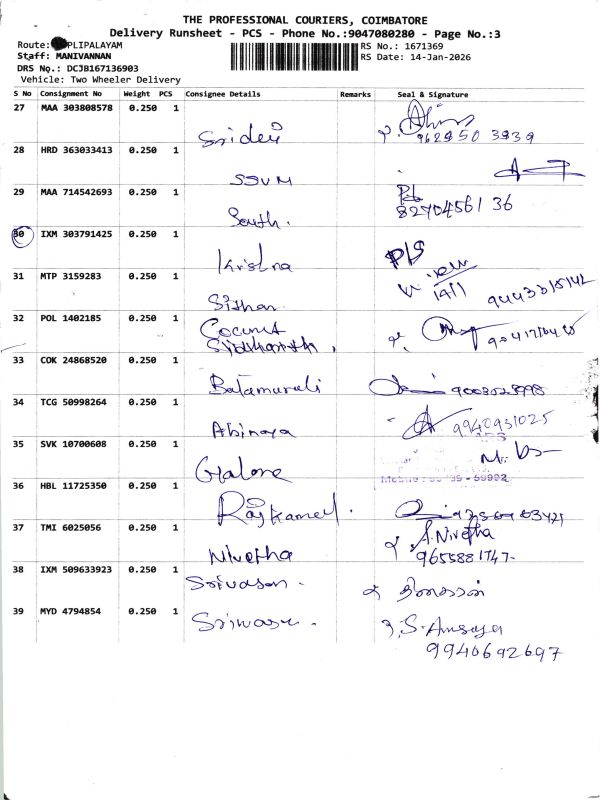 THE PROFESSIONAL COURIERS, COIMBATORE
Delivery Runsheet - PCS - Phone No.:9047080280 - Page No.:3
Route: PLIPALAYAM
RS No.: 1671369
Staff: MANIVANNAN
RS Date: 14-Jan-2026
DRS No.: DCJB167136903
Vehicle: Two Wheeler Delivery
S No Consignment No Weight PCS Consignee Details Remarks Seal & Signature
27 MAA 303808578 0.250 1
Sridevi
28 HRD 363033413 0.250 1
SSVM
29 MAA 714542693 0.250 1
South. 8270456136
30 IXM 303791425 0.250 1
Krishna
31 MTP 3159283 0.250 1
14/1
32 POL 1402185 0.250 1
Coconut
Siddharth
33 COK 24868520 0.250 1
Balamurali
34 TCG 50998264 0.250 1
Abinaya 9940931025
35 SVK 10700608 0.250 1
36 HBL 11725350 0.250 1
Rajkamal.
37 TMI 6025056 0.250 1
A. Nivetha
Nivetha 9655881747-
38 IXM 509633923 0.250 1
Srivasan -
39 MYD 4794854 0.250 1
9940692697